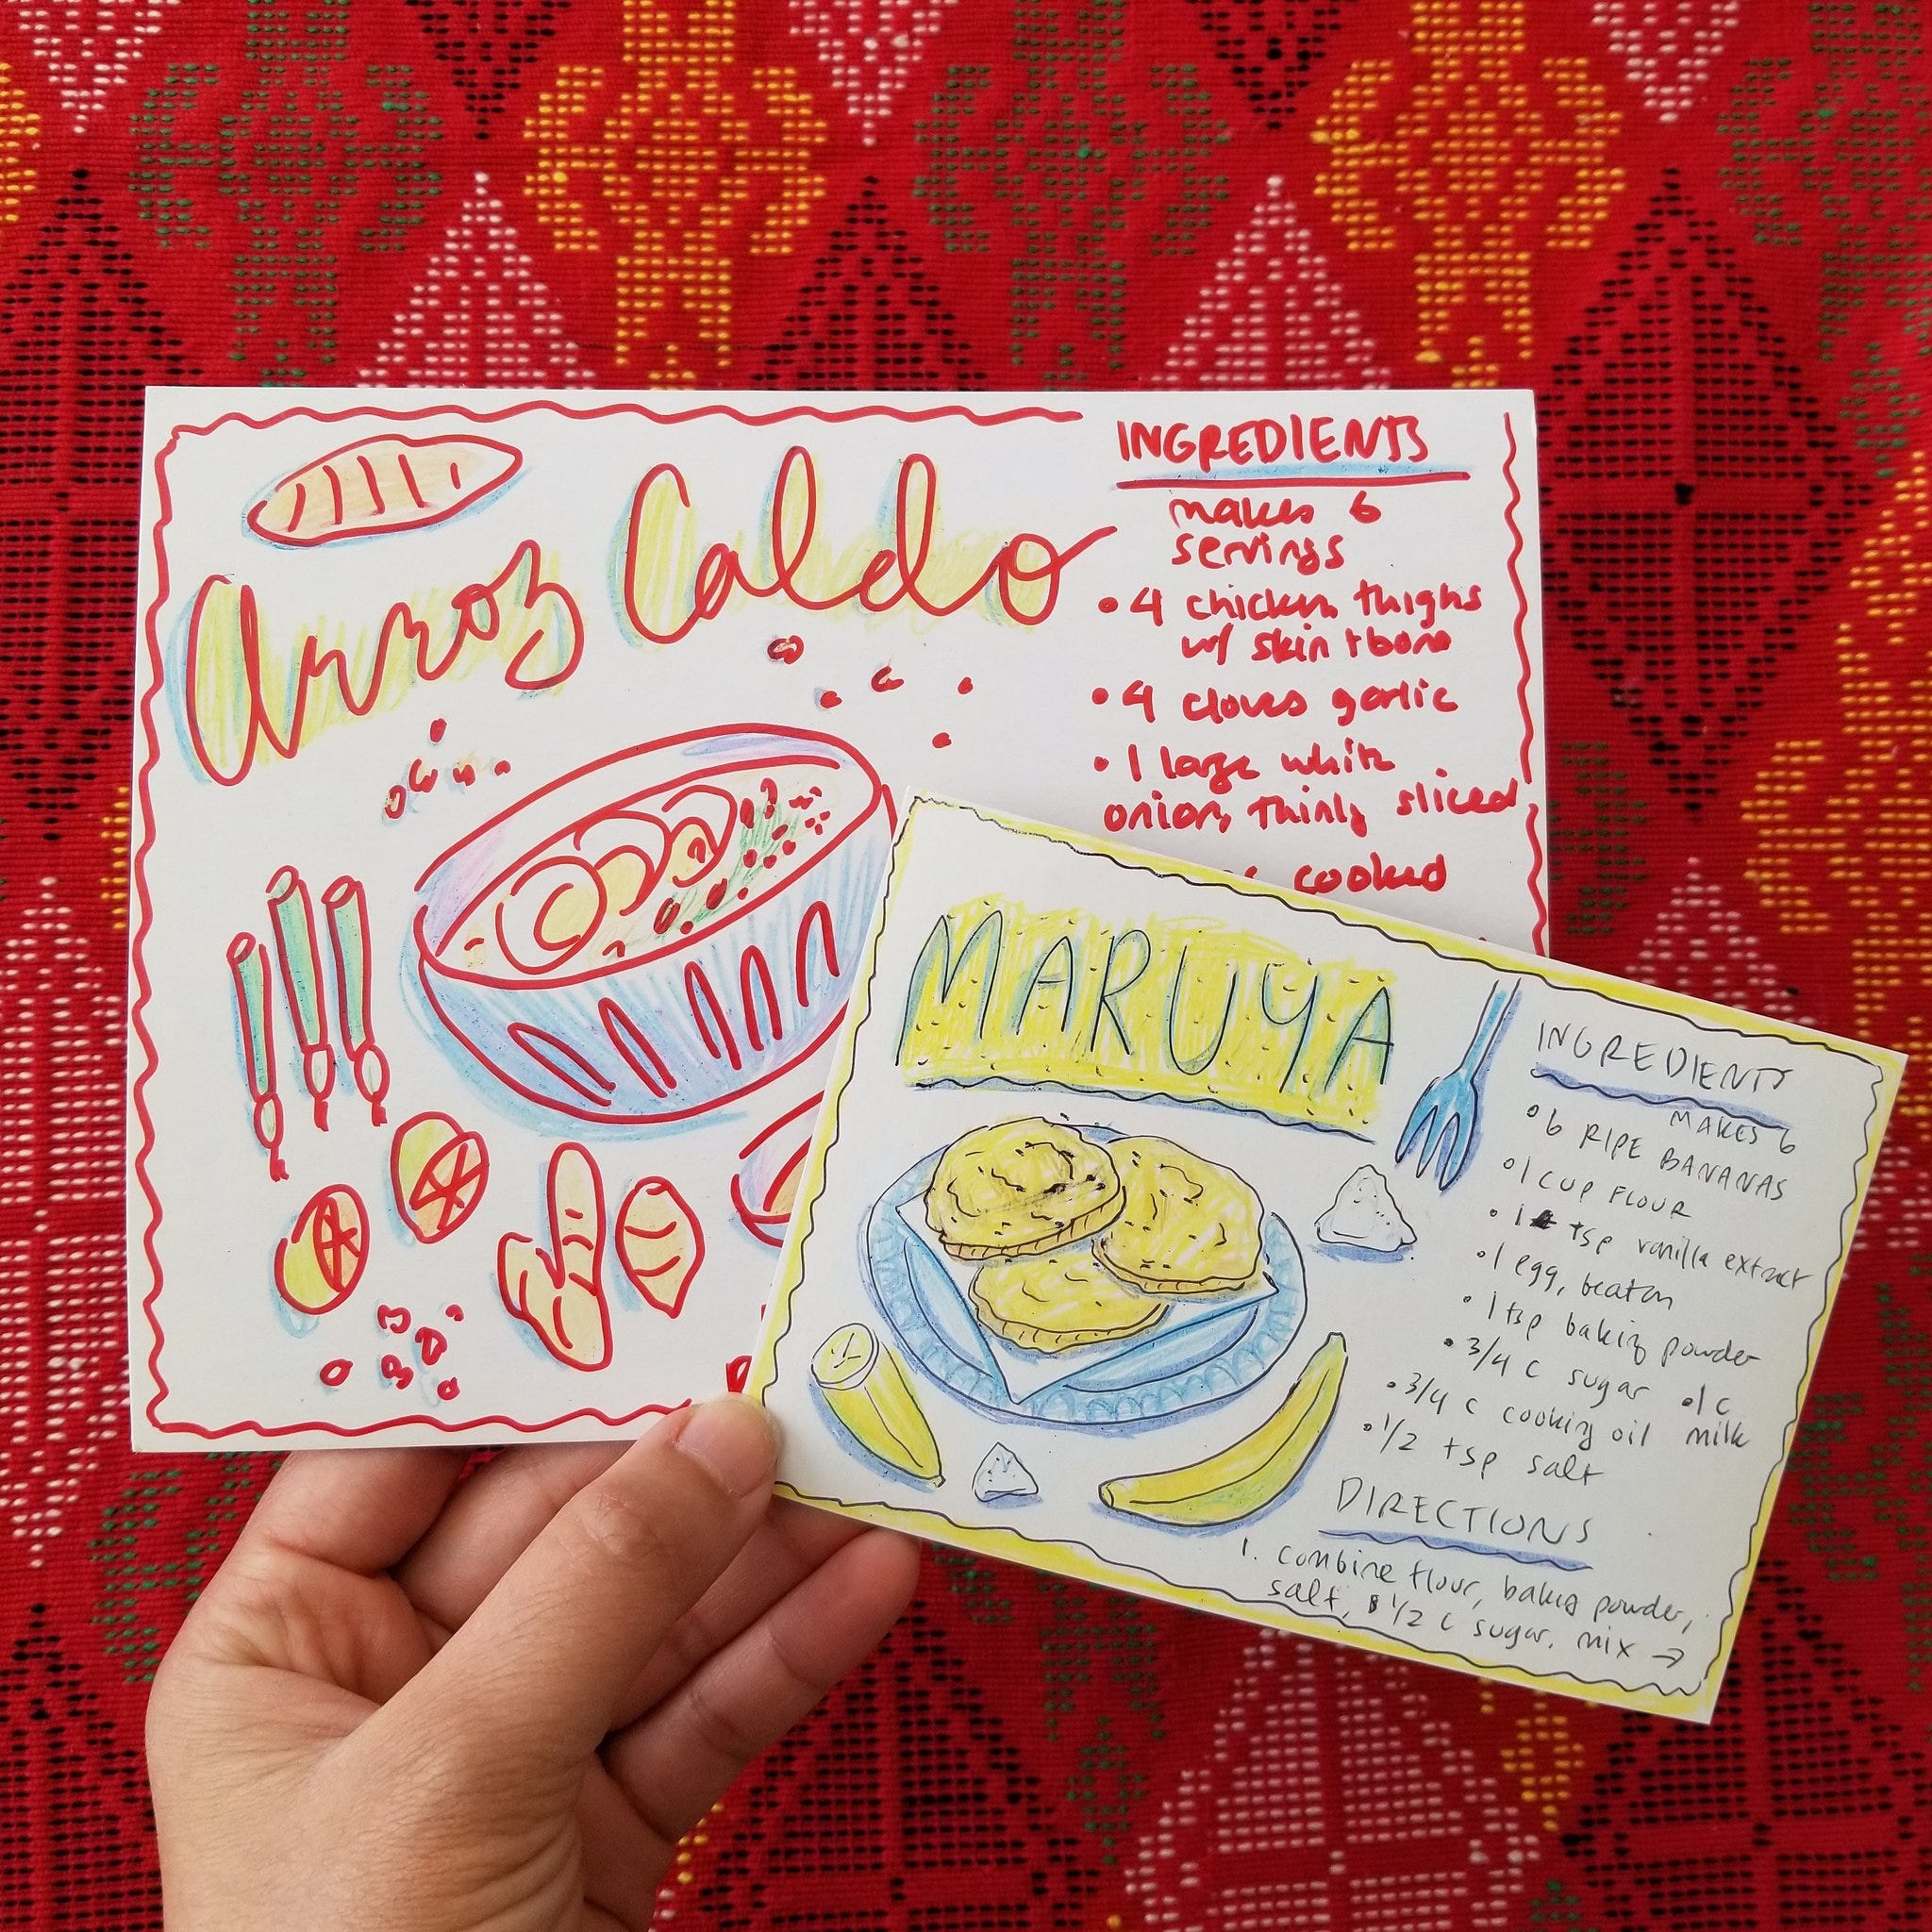 Arroz Caldo
INGREDIENTS
makes 6
servings
• 4 chicken thighs
w/ skin + bone
• 4 cloves garlic
• 1 large white
onion, thinly sliced
cooked
MARUYA
INGREDIENTS
MAKES 6
• 6 RIPE BANANAS
• 1 CUP FLOUR
• 1 tsp vanilla extract
• 1 egg, beaten
• 1 tsp baking powder
• 3/4 c sugar • 1 c
• 3/4 c cooking oil milk
• 1/2 tsp salt
DIRECTIONS
1. combine flour, baking powder,
salt, & 1/2 c sugar. mix →